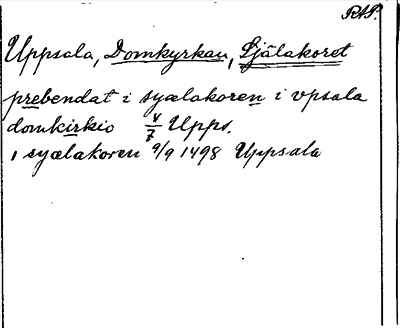 RAP.
Uppsala, Domkyrkan, Själakoret
prebendat i syælakoren i vpsala
domkirkio V/7 Upps.
i syælakoren 9/9 1498 Uppsala